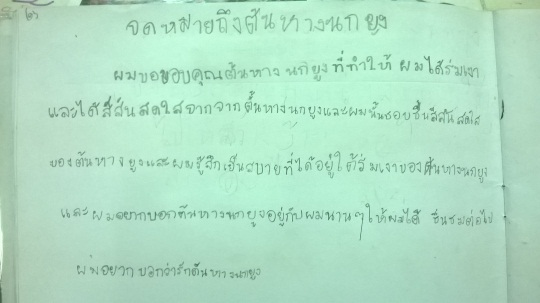 จดหมายถึงต้นหางนกยูง
ผมขอขอบคุณต้นหางนกยูงที่ทำให้ ผมได้ร่มเงา
และได้สีสันสดใสจากจากต้นหางนกยูงและผมนั้นชอบชื่นสีสันสดใส
ของต้นหางยูงและผมรู้สึกเย็นสบายที่ได้อยู่ใต้ร่มเงาของต้นหางนกยูง
และผมอยากบอกต้นหางนกยูงอยู่กับผมนานๆให้ผมได้ ชื่นชมต่อไป
ผมอยากบอกว่ารักต้นหางนกยูง